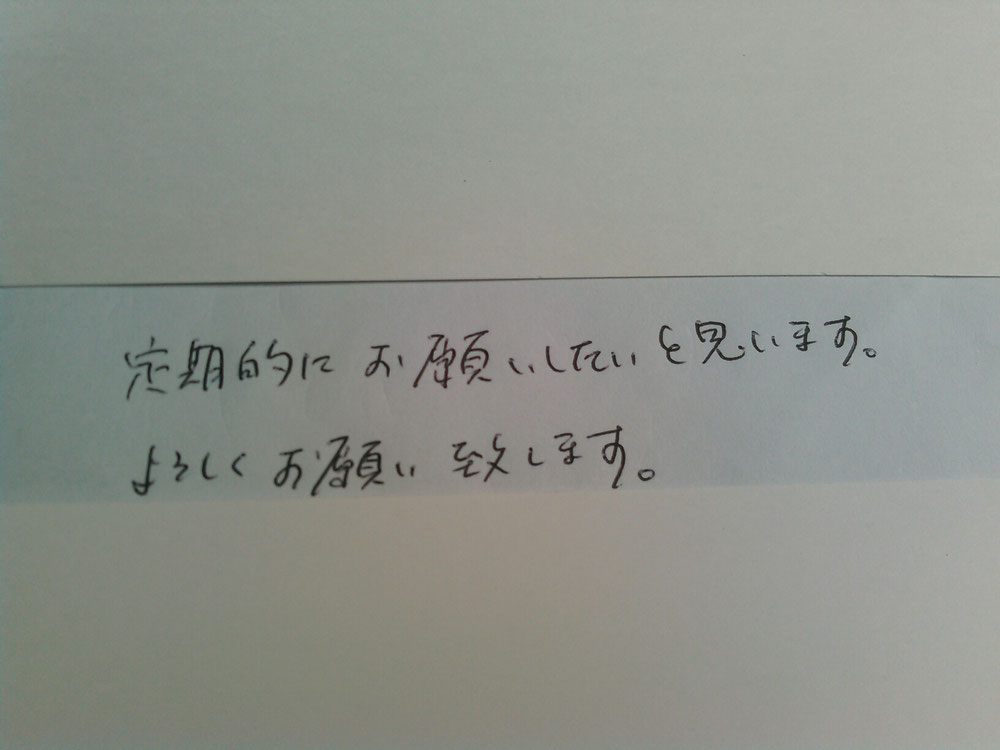 定期的にお願いしたいと思います。
よろしくお願い致します。